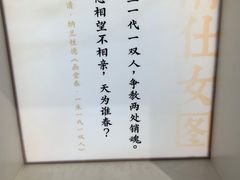 仕女图
一代一双人，争教两处销魂。
相望不相亲，天为谁春？
清·纳兰性德《画堂春·一生一代一双人》